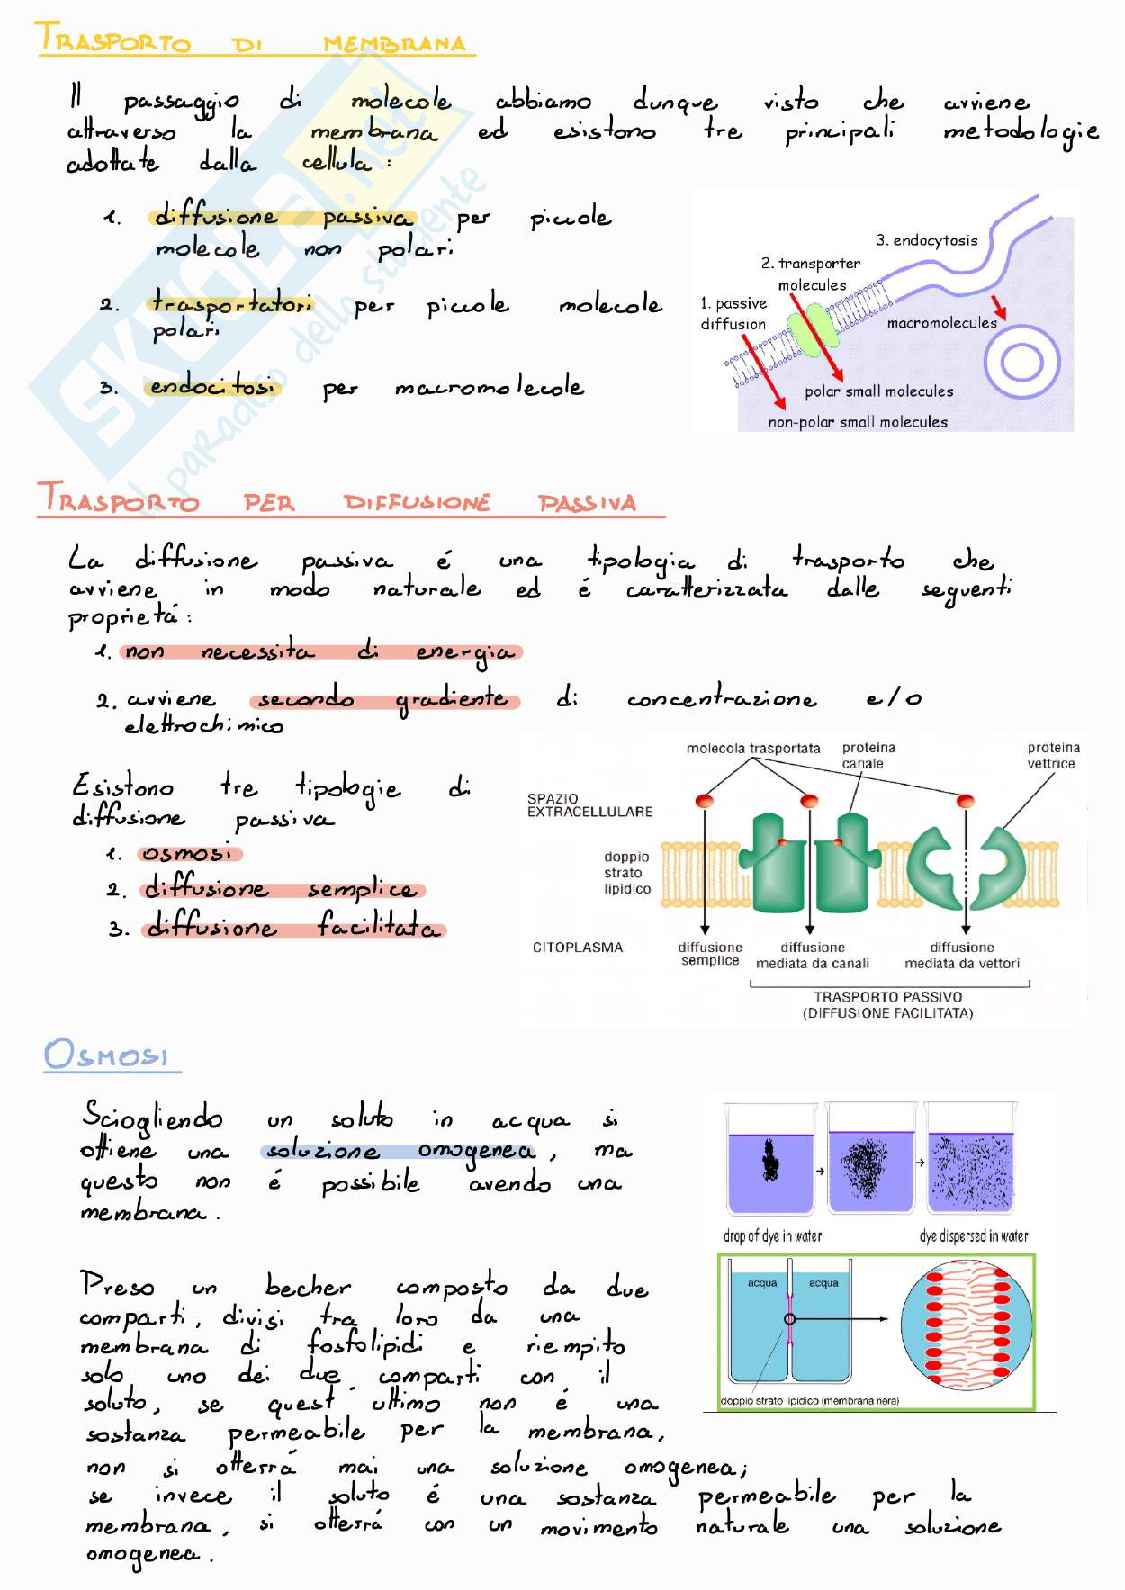 TRASPORTO DI MEMBRANA
Il passaggio di molecole abbiamo dunque visto che avviene
attraverso la membrana ed esistono tre principali metodologie
adottate dalla cellula:
1. diffusione passiva per piccole
molecole non polari
2. trasportatori per piccole molecole
polari
3. endocitosi per macromolecole
3. endocytosis
2. transporter
molecules
1. passive
diffusion
macromolecules
polar small molecules
non-polar small molecules
SKUOLA.net
il paradiso dello studente
TRASPORTO PER DIFFUSIONE PASSIVA
La diffusione passiva é una tipologia di trasporto che
avviene in modo naturale ed é caratterizzata dalle seguenti
proprietá:
1. non necessita di energia
2. avviene secondo gradiente di concentrazione e/o
elettrochimico
Esistono tre tipologie di
diffusione passiva
1. osmosi
2. diffusione semplice
3. diffusione facilitata
molecola trasportata
proteina
canale
proteina
vettrice
SPAZIO
EXTRACELLULARE
doppio
strato
lipidico
CITOPLASMA
diffusione
semplice
diffusione
mediata da canali
diffusione
mediata da vettori
TRASPORTO PASSIVO
(DIFFUSIONE FACILITATA)
OSMOSI
Sciogliendo un soluto in acqua si
ottiene una soluzione omogenea, ma
questo non é possibile avendo una
membrana.
Preso un becher composto da due
comparti, divisi tra loro da una
membrana di fosfolipidi e riempito
solo uno dei due comparti con il
soluto, se quest'ultimo non é una
sostanza permeabile per la membrana,
non si otterrá mai una soluzione omogenea;
se invece il soluto é una sostanza permeabile per la
membrana, si otterrá con un movimento naturale una soluzione
omogenea.
drop of dye in water
dye dispersed in water
acqua
acqua
doppio strato lipidico (membrana nera)